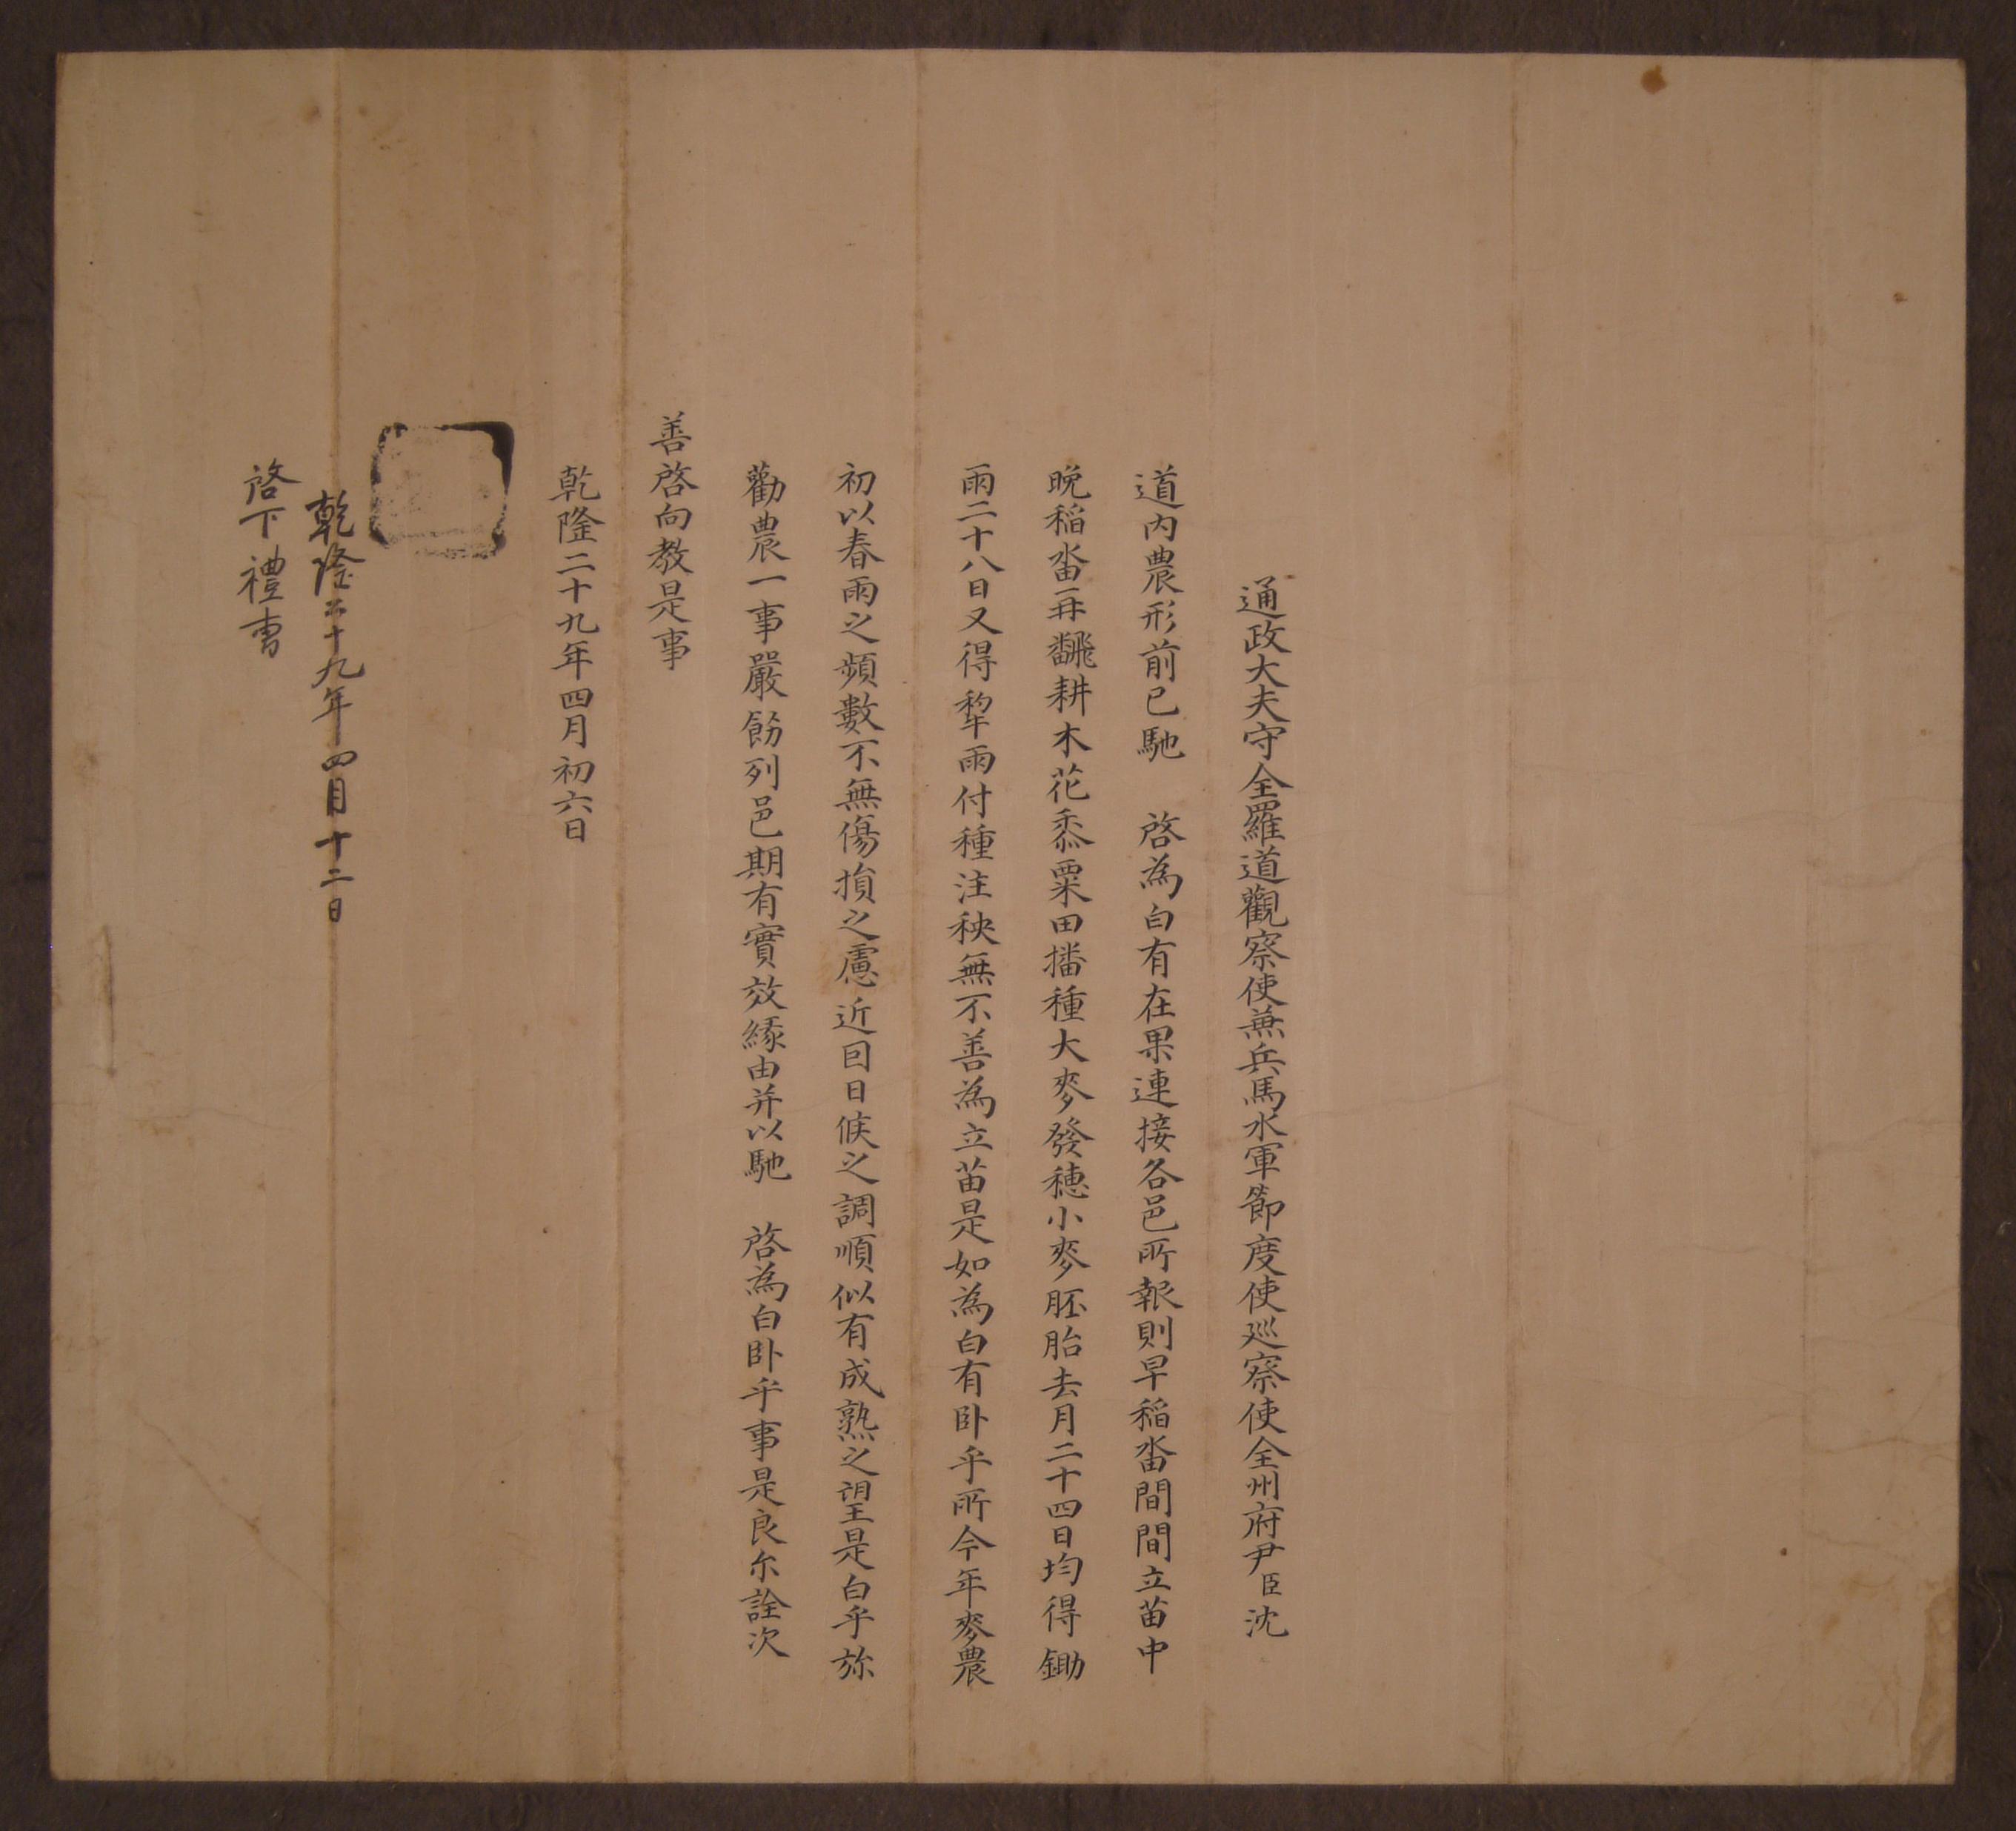 通政大夫守全羅道觀察使兼兵馬水軍節度使巡察使全州府尹臣沈
道內農形前已馳 啓為白有在果連接各邑所報則早稻畓間間立苗中
晚稻畓再飜耕木花黍粟田播種大麥發穗小麥胚胎去月二十四日均得鋤
雨二十八日又得犂雨付種注秧無不善為立苗是如為白有卧乎所今年麥農
初以春雨之頻數不無傷損之慮近囙日候之調順似有成熟之望是白乎旀
勸農一事嚴飭列邑期有實效緣由并以馳 啓為白卧乎事是良尒詮次
善啓向教是事
乾隆二十九年四月初六日
乾隆二十九年四月十二日
啓下禮曺